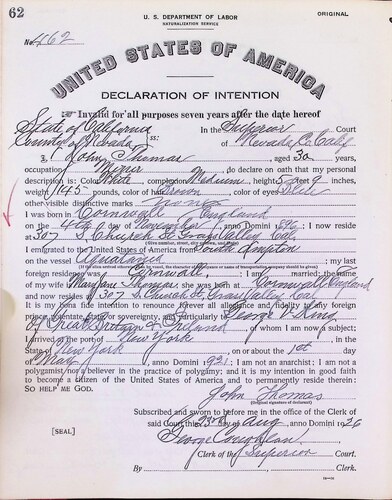 62
U. S. DEPARTMENT OF LABOR
NATURALIZATION SERVICE
ORIGINAL
No. 462
UNITED STATES OF AMERICA
DECLARATION OF INTENTION
☞ Invalid for all purposes seven years after the date hereof
State of California
County of Nevada ss:
In the Superior Court
of Nevada Co. Calif
I, John Thomas, aged 30 years,
occupation Miner, do declare on oath that my personal
description is: Color White, complexion Medium, height 5 feet 9 inches,
weight 145 pounds, color of hair Brown, color of eyes Blue
other visible distinctive marks None
I was born in Cornwall England
on the 4th day of November, anno Domini 1896; I now reside
at 307 S. Church St Grass Valley Cal.
(Give number, street, city or town, and State.)
I emigrated to the United States of America from South Hampton
on the vessel Aquatania; my last
foreign residence was Cornwall; I am married; the name
of my wife is Mary Jane Thomas; she was born at Cornwall England
and now resides at 307 S. Church St. Grass Valley Cal.
It is my bona fide intention to renounce forever all allegiance and fidelity to any foreign
prince, potentate, state, or sovereignty, and particularly to George V King
of Great Britain & Ireland, of whom I am now a subject;
I arrived at the port of New York, in the
State of New York, on or about the 1st day
of May, anno Domini 1921; I am not an anarchist; I am not a
polygamist nor a believer in the practice of polygamy; and it is my intention in good faith
to become a citizen of the United States of America and to permanently reside therein:
SO HELP ME GOD.
John Thomas
(Original signature of declarant.)
Subscribed and sworn to before me in the office of the Clerk of
said Court this 23rd day of Aug, anno Domini 1926
[SEAL]
George Coughlan
Clerk of the Superior Court.
By , Clerk.